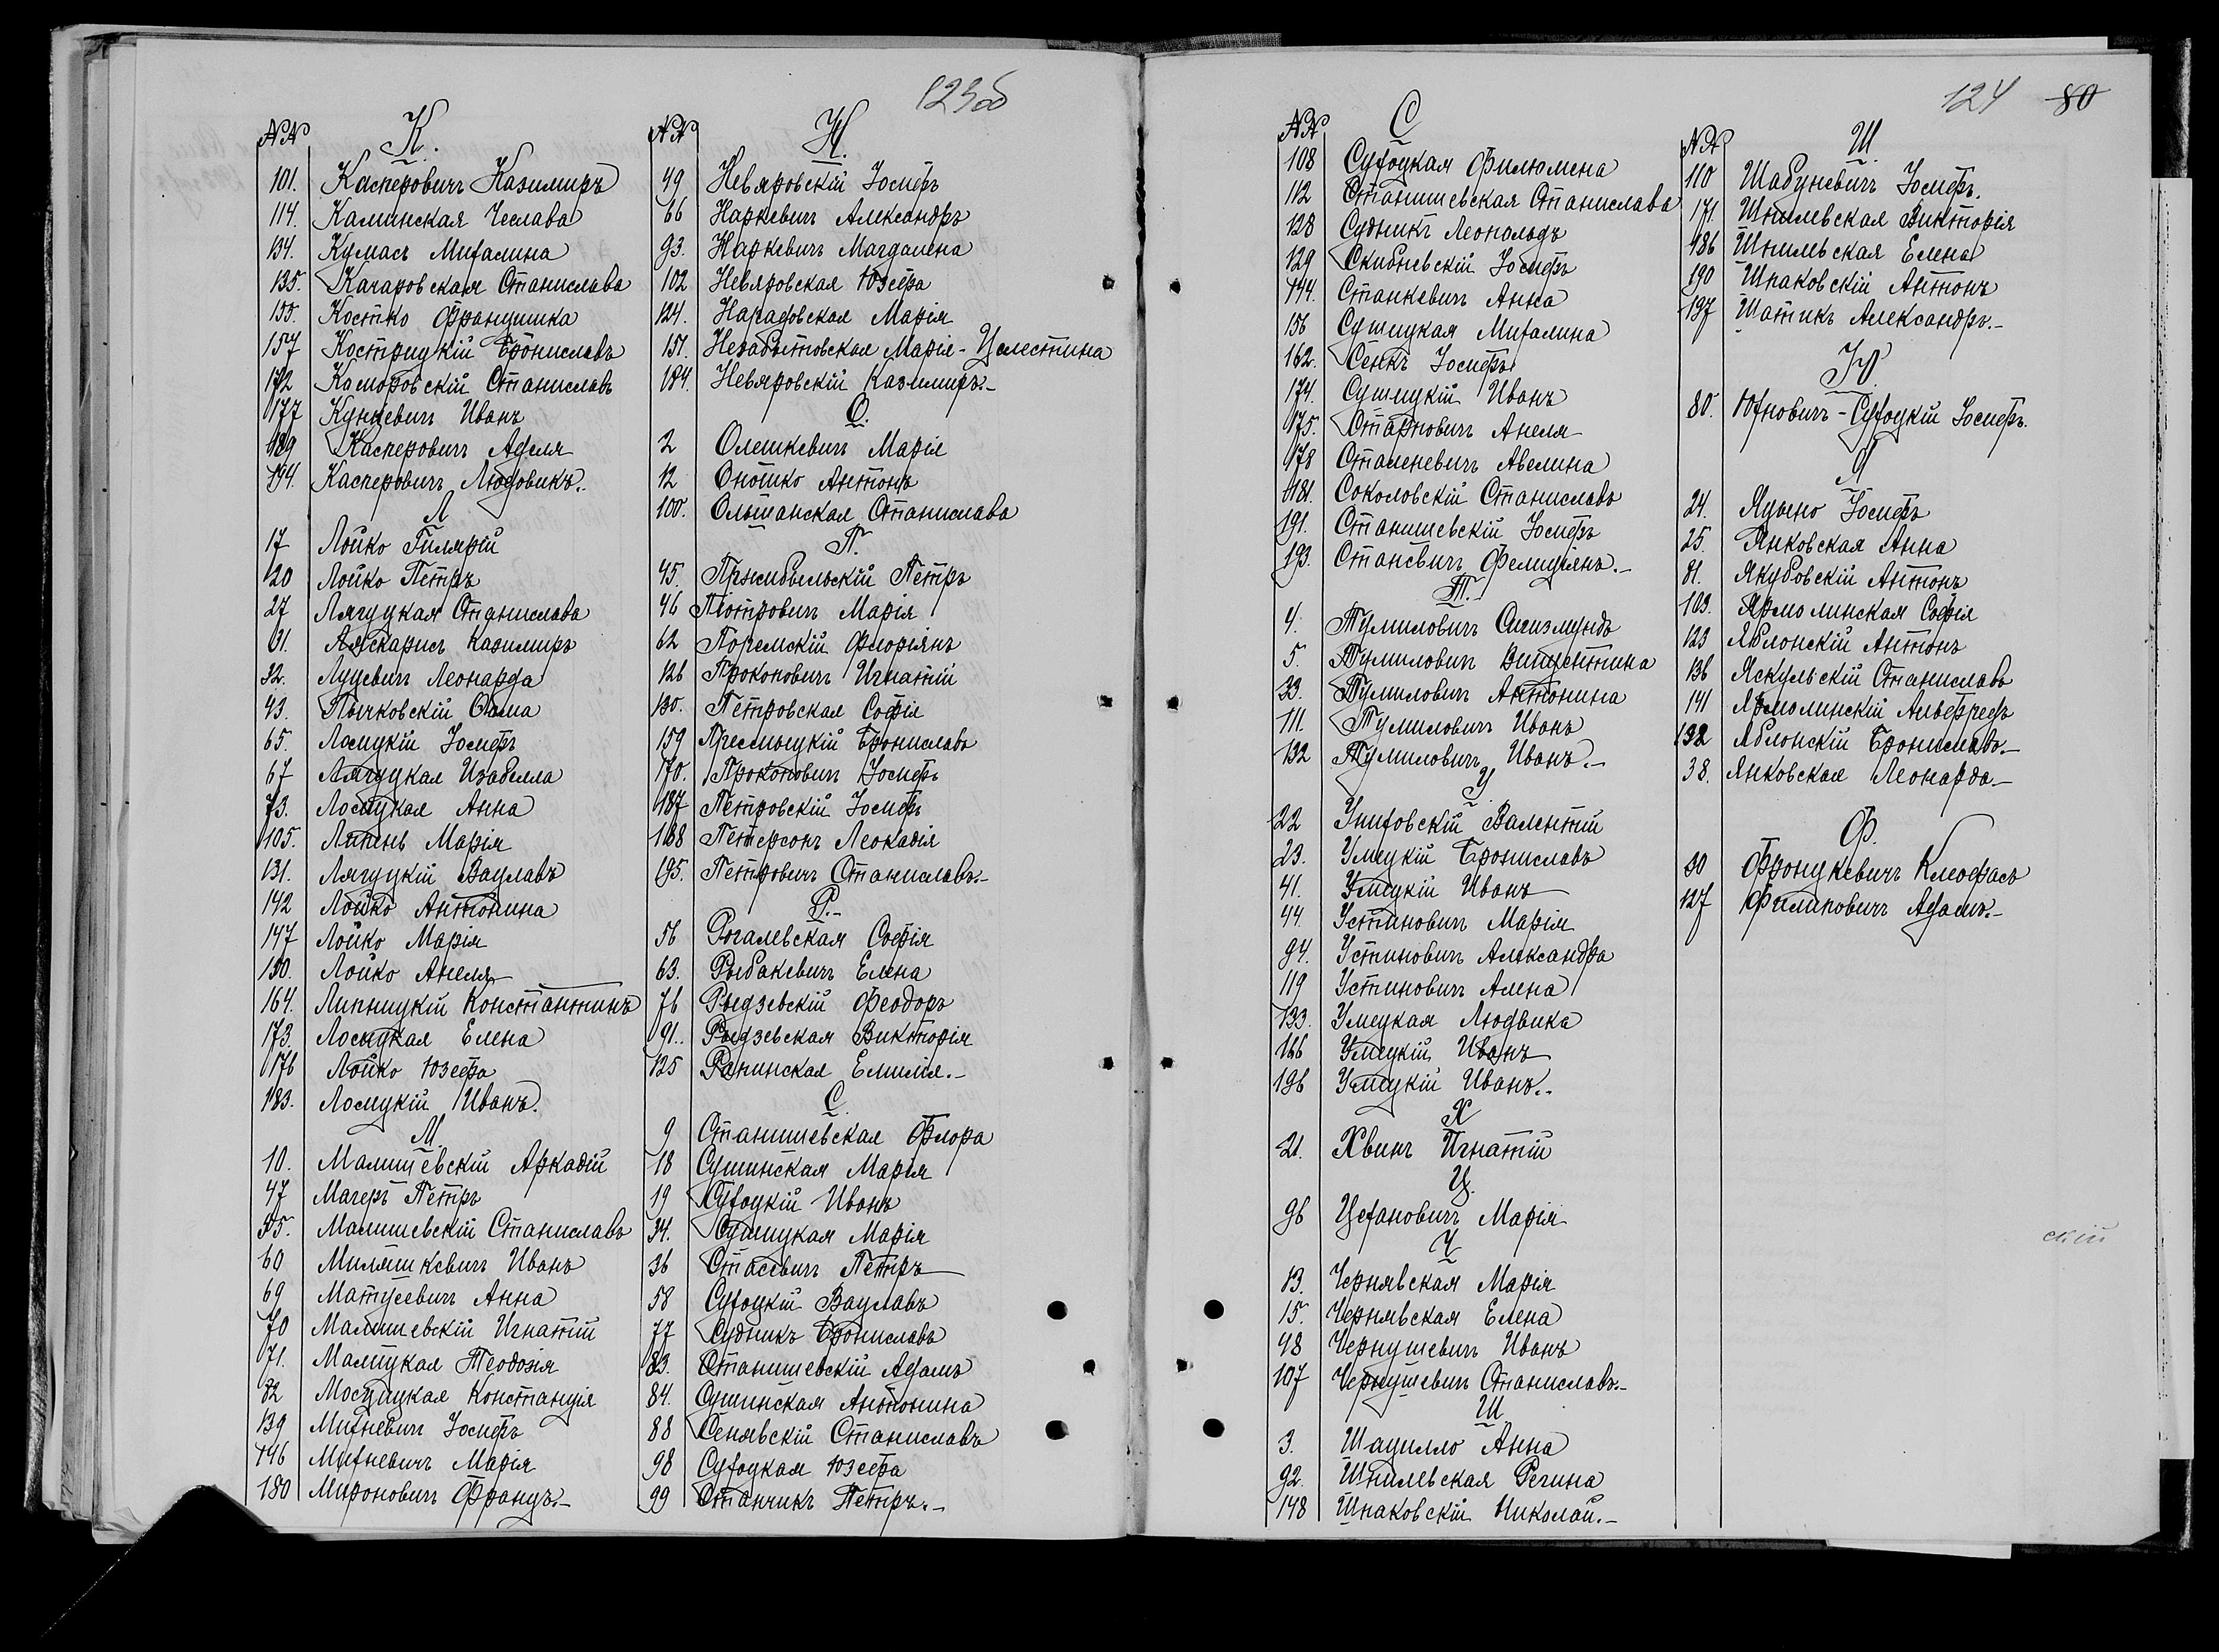 123об
№№ К.
101. Касперовичъ Казимиръ
114. Каминская Чеслава
134. Кумась Михалина
135. Качаровская Станислава
155. Костко Францишка
157 Кострицкій Брониславъ
172 Каморовскій Станиславъ
177 Кунцевичъ Иванъ
189 Касперовичъ Аделя
194. Касперовичъ Людовикъ.
Л
17 Лойко Гилярій
20 Лойко Петръ
27 Лягуцкая Станислава
31. Ляскарисъ Казимиръ
32. Луцевичъ Леонарда
43. Лычковскій Ѳома
65. Лосицкій Іосифъ
67 Лягуцкая Изабелла
73. Лосицкая Анна
105. Липень Марія
131. Лягуцкій Вацлавъ
142 Лойко Антонина
147 Лойко Марія
150. Лойко Анеля
164. Липницкій Константинъ
173. Лосицкая Елена
176 Лойко Юзефа
183. Лосицкій Иванъ.
М.
10. Малишевскій Аркадій
47 Магеръ Петръ
55. Малишевскій Станиславъ
60 Миляшкевичъ Иванъ
69 Матусевичъ Анна
70 Малишевскій Игнатій
71. Малицкая Теодозія
72 Мосицкая Констанція
139 Михневичъ Іосифъ
146 Михневичъ Марія
180 Мироновичъ Францъ.-
№№ Н.
49 Невяровскій Іосифъ
66 Наркевичъ Александръ
93. Наркевичъ Магдалена
102 Невяровская Юзефа
124. Нарадовская Марія
151. Незабытовская Марія-Целестина
184. Невяровскій Казимиръ.-
О.
2 Олешкевичъ Марія
12 Оношко Антонъ
100. Ольшанская Станислава
П.
45. Пржибыльскій Петръ
46 Піотровичъ Марія
62 Поремскій Флоріянъ
126 Прокоповичъ Игнатій
130. Петровская Софія
159 Пресмыцкій Брониславъ
170. Прокоповичъ Іосифъ
187 Петровскій Іосифъ
188 Петерсонъ Леокадія
195. Петровичъ Станиславъ.-
Р.-
56 Рогалевская Софія
63. Рыбакевичъ Елена
76 Рыдзевскій Феодоръ
91. Рыдзевская Викторія
125 Рачинская Емилія.-
С.
9 Станишевская Флора
18 Сушинская Марія
19 Сухоцкій Иванъ
34. Сушицкая Марія
36 Стасевичъ Петръ
58 Сухоцкій Вацлавъ
77 Судникъ Брониславъ
83. Станишевскій Адамъ
84. Сушинская Антонина
88 Сенявскій Станиславъ
98 Сухоцкая Юзефа
99 Станчикъ Петръ.-
124 80
№№ С
108 Сухоцкая Филюмена
112 Станишевская Станислава
128 Судникъ Леопольдъ
129 Скибневскій Іосифъ
144. Станкевичъ Анна
156 Сушицкая Михалина
162. Сенкъ Іосифъ
174. Сушицкій Иванъ
175. Стариовичъ Анеля
178 Сталеневичъ Авелина
181. Соколовскій Станиславъ
191. Станишевскій Іосифъ
193. Станевичъ Фелиціянъ.-
Т.-
4. Тумиловичъ Сигизмундъ
5. Тумиловичъ Винцентина
33. Тумиловичъ Антонина
111. Тумиловичъ Иванъ
132 Тумиловичъ Иванъ.-
У.
22 Униховскій Валентій
23. Умецкій Брониславъ
41. Умецкій Иванъ
44. Устиновичъ Марія
94. Устиновичъ Александра
119 Устиновичъ Алена
133. Умецкая Людвика
166 Умецкій Иванъ
196 Умецкій Иванъ..
Х
21. Хвинъ Игнатій
Ц.
96 Цехановичъ Марія
Ч
13. Чернявская Марія
15. Чернявская Елена
48 Чернушевичъ Иванъ
107 Чернушевичъ Станиславъ.-
Ш
3. Шацилло Анна
92. Шпилевская Регина
148 Шпаковскій Николай.-
№№ Ш.
110 Шабуневичъ Іосифъ.
171. Шпилевская Викторія
186 Шпилевская Елена
190 Шпаковскій Антонъ
197 Шатикъ Александръ.-
Ю.
80. Юхновичъ-Сухоцкій Іосифъ.
Я
24. Яцыно Іосифъ
25. Янковская Анна
81. Якубовскій Антонъ
103. Ярмолинская Софія
123 Яблонскій Антонъ
136 Яскульскій Станиславъ
141 Ярмолинскій Альфредъ
192 Яблонскій Брониславъ.-
38. Янковская Леонарда.-
Ф.
30 Фронцкевичъ Клеофасъ
127 Филиповичъ Адамъ.-
скій